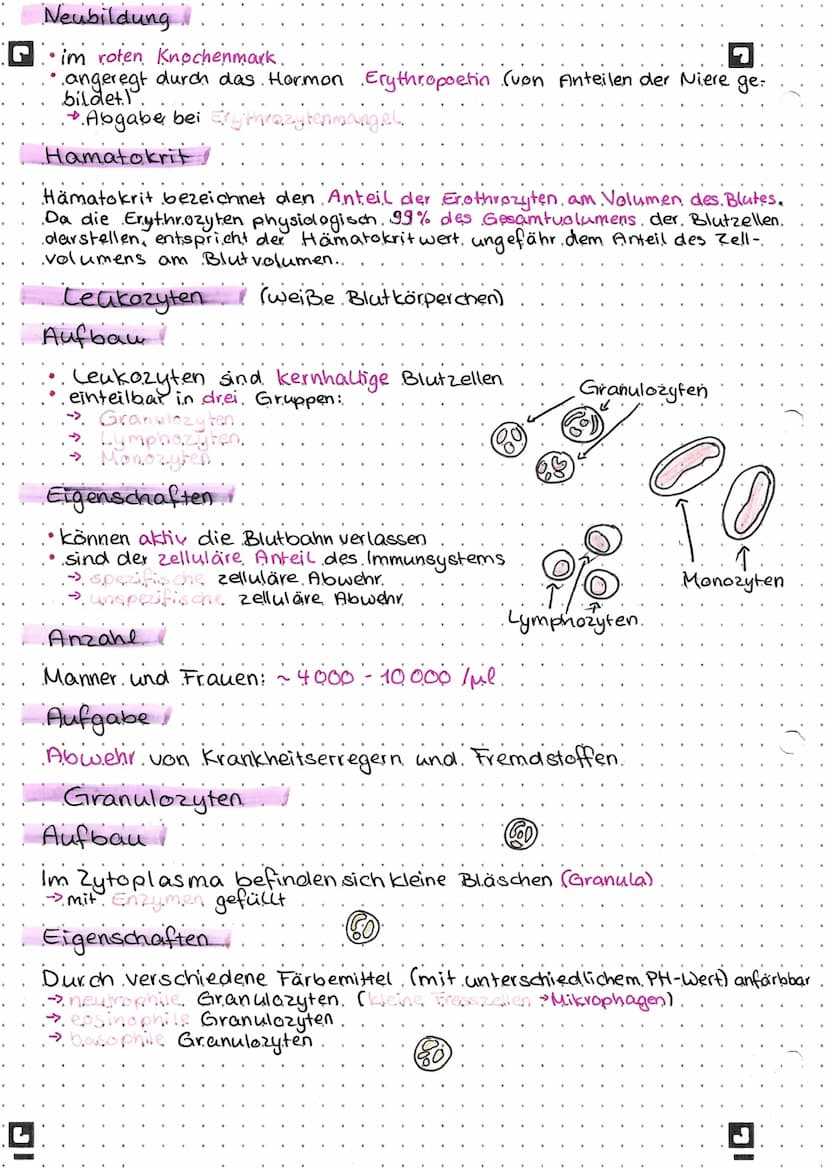 Neubildung
• im roten Knochenmark
• angeregt durch das Hormon Erythropoetin (von Anteilen der Niere ge-
bildet)
→ Abgabe bei Erythrozytenmangel
Hämatokrit
Hämatokrit bezeichnet den Anteil der Erothrozyten am Volumen des Blutes.
Da die Erythrozyten physiologisch 99% des Gesamtvolumens der Blutzellen
darstellen, entspricht der Hämatokritwert ungefähr dem Anteil des Zell-
volumens am Blutvolumen.
Leukozyten (weiße Blutkörperchen)
Aufbau
• Leukozyten sind kernhaltige Blutzellen
• einteilbar in drei Gruppen:
→ Granulozyten
→ Lymphozyten
→ Monozyten
Granulozyten
Eigenschaften
• können aktiv die Blutbahn verlassen
• sind der zelluläre Anteil des Immunsystems
→ spezifische zelluläre Abwehr
→ unspezifische zelluläre Abwehr
Monozyten
Lymphozyten
Anzahl
Männer und Frauen: ~ 4000 - 10 000 /µl
Aufgabe
Abwehr von Krankheitserregern und Fremdstoffen
Granulozyten
Aufbau
Im Zytoplasma befinden sich kleine Bläschen (Granula)
→ mit Enzymen gefüllt
Eigenschaften
Durch verschiedene Färbemittel (mit unterschiedlichem PH-Wert) anfärbbar
→ neutrophile Granulozyten (kleine Fresszellen → Mikrophagen)
→ eosinophile Granulozyten
→ basophile Granulozyten